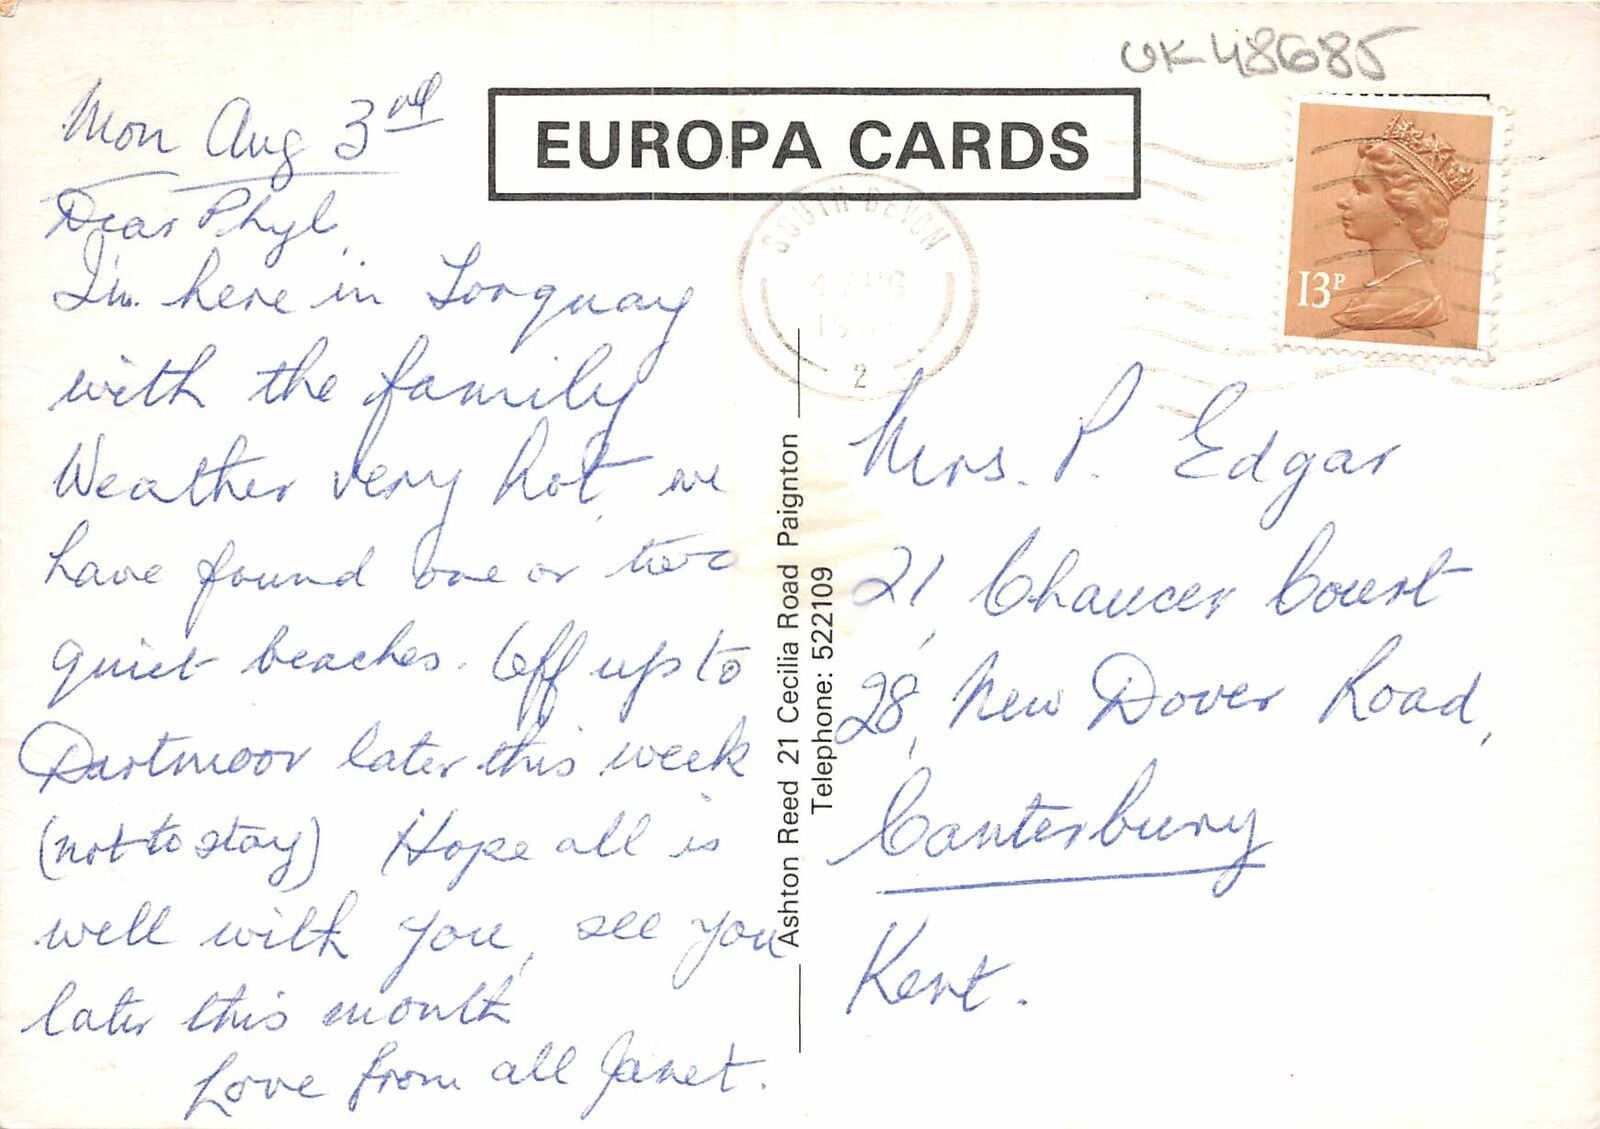 UK-48685
EUROPA CARDS
Mon Aug 3rd
Dear Phyl,
I'm here in Torquay
with the family
Weather very hot, we
have found one or two
quiet beaches. Off up to
Dartmoor later this week
(not to stay) Hope all is
well with you, see you
later this month
Love from all Janet.
SOUTH DEVON
4 AUG
2
13P
Ashton Reed 21 Cecilia Road Paignton
Telephone: 522109
Mrs. P. Edgar
21, Chaucer Court
28, New Dover Road,
Canterbury
Kent.